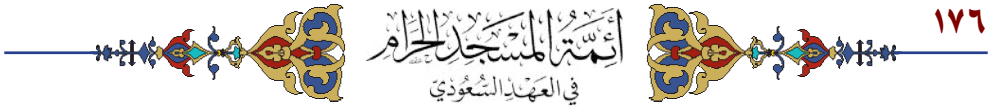 ١٧٦
أَئِمَّةُ المَسْجِدِ الحَرَامِ
في العَهْدِ السُّعُودِيّ